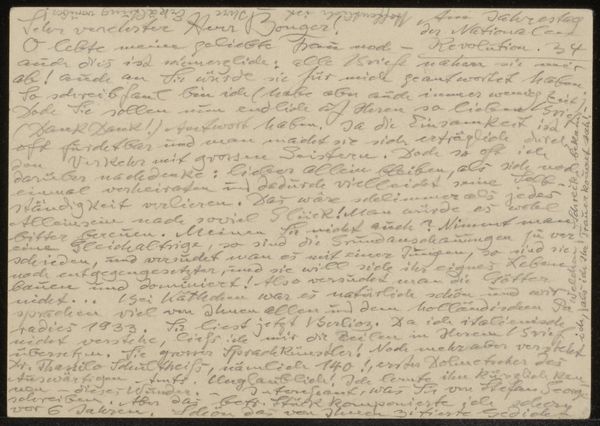 Am Jahrestag
Sehr verehrter Herr Bonger! der Nationalen
O lebte meine geliebte Frau noch – Revolution. 34
auch dies ist schmerzlich: alle Briefe nahm sie mir
ab! auch an Sie würde sie für mich geantwortet haben.
So schreibfaul bin ich (habe aber auch immer wenig Zeit)
Doch Sie sollen nun endlich auf Ihren so lieben Brief
(Dank Dank!) Antwort haben. Ja die Einsamkeit ist
oft furchtbar und man macht sie sich erträglich durch
den Verkehr mit grossen Geistern. Doch so oft ich
darüber nachdenke: lieber allein bleiben, als sich noch
einmal verheiraten und dadurch vielleicht seine Selb-
ständigkeit verlieren. Das wäre schlimmer als jedes
Alleinsein nach soviel Glück! Man würde es wohl
bitter bereuen. Meinen Sie nicht auch? Nimmt man
eine Gleichaltrige, so sind die Grundanschauungen zu ver-
schieden, und versucht man es mit einer Jungen, so sind sie
noch entgegengesetzter, und sie will sich ihr eignes Leben
bauen und dominiert! Also versucht man die Götter
nicht... Bei Käthchen war es natürlich schön und wir
sprachen viel von Ihnen allen und dem holländischen Pa-
radies 1933. Sie liest jetzt Berlioz. Da ich italienisch
nicht verstehe, liess ich mir die Zeilen in Ihrem Brief
übersetzen. Sie grosser Sprachkünstler! Noch mehr aber versteht
Dr. Thassilo Schultheiss, nämlich 140!, erster Dolmetscher des
Auswärtigen Amts. Unglaublich! Ich lernte ihn kürzlich ken-
nen, dieses Wunder. – Interessant, was Sie von Stefan George
schreiben. Aber das betr. Stück komponierte ich schon
vor 6 Jahren. Schön das von Ihnen zitierte Gedicht